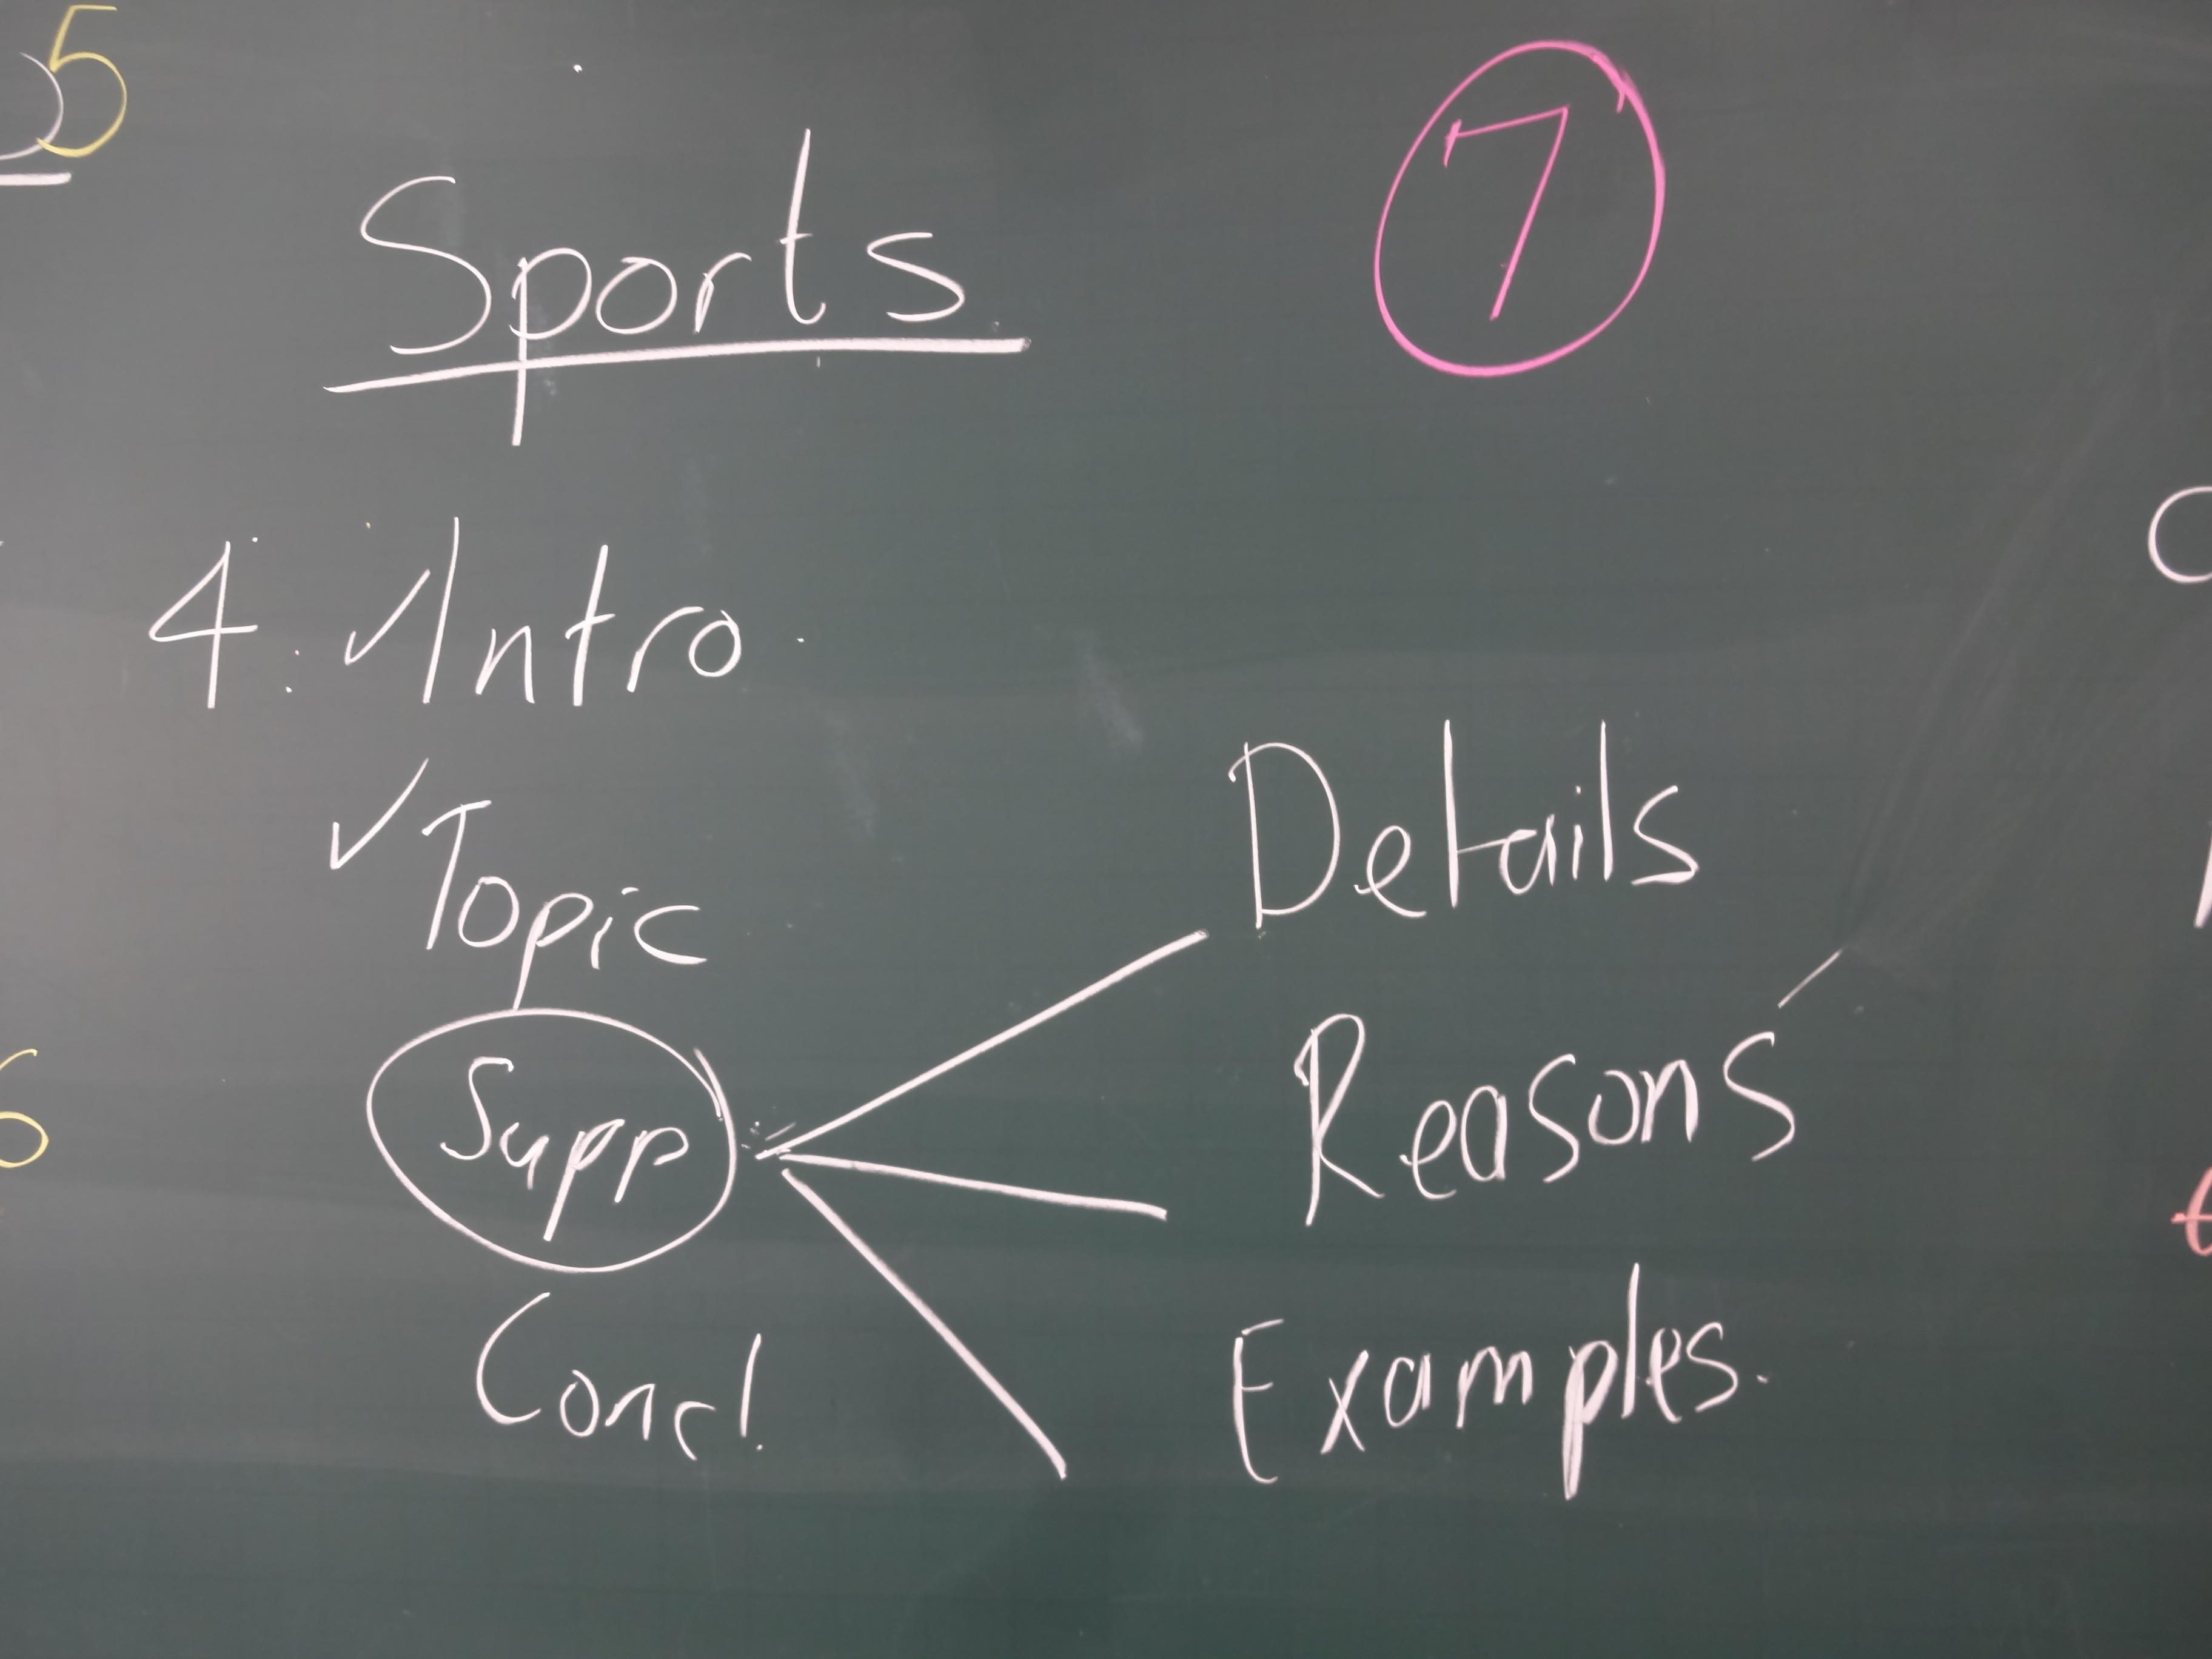 5
Sports
7
4: ✓Intro
✓Topic
Details
Supp
Reasons
Examples.
Concl
6